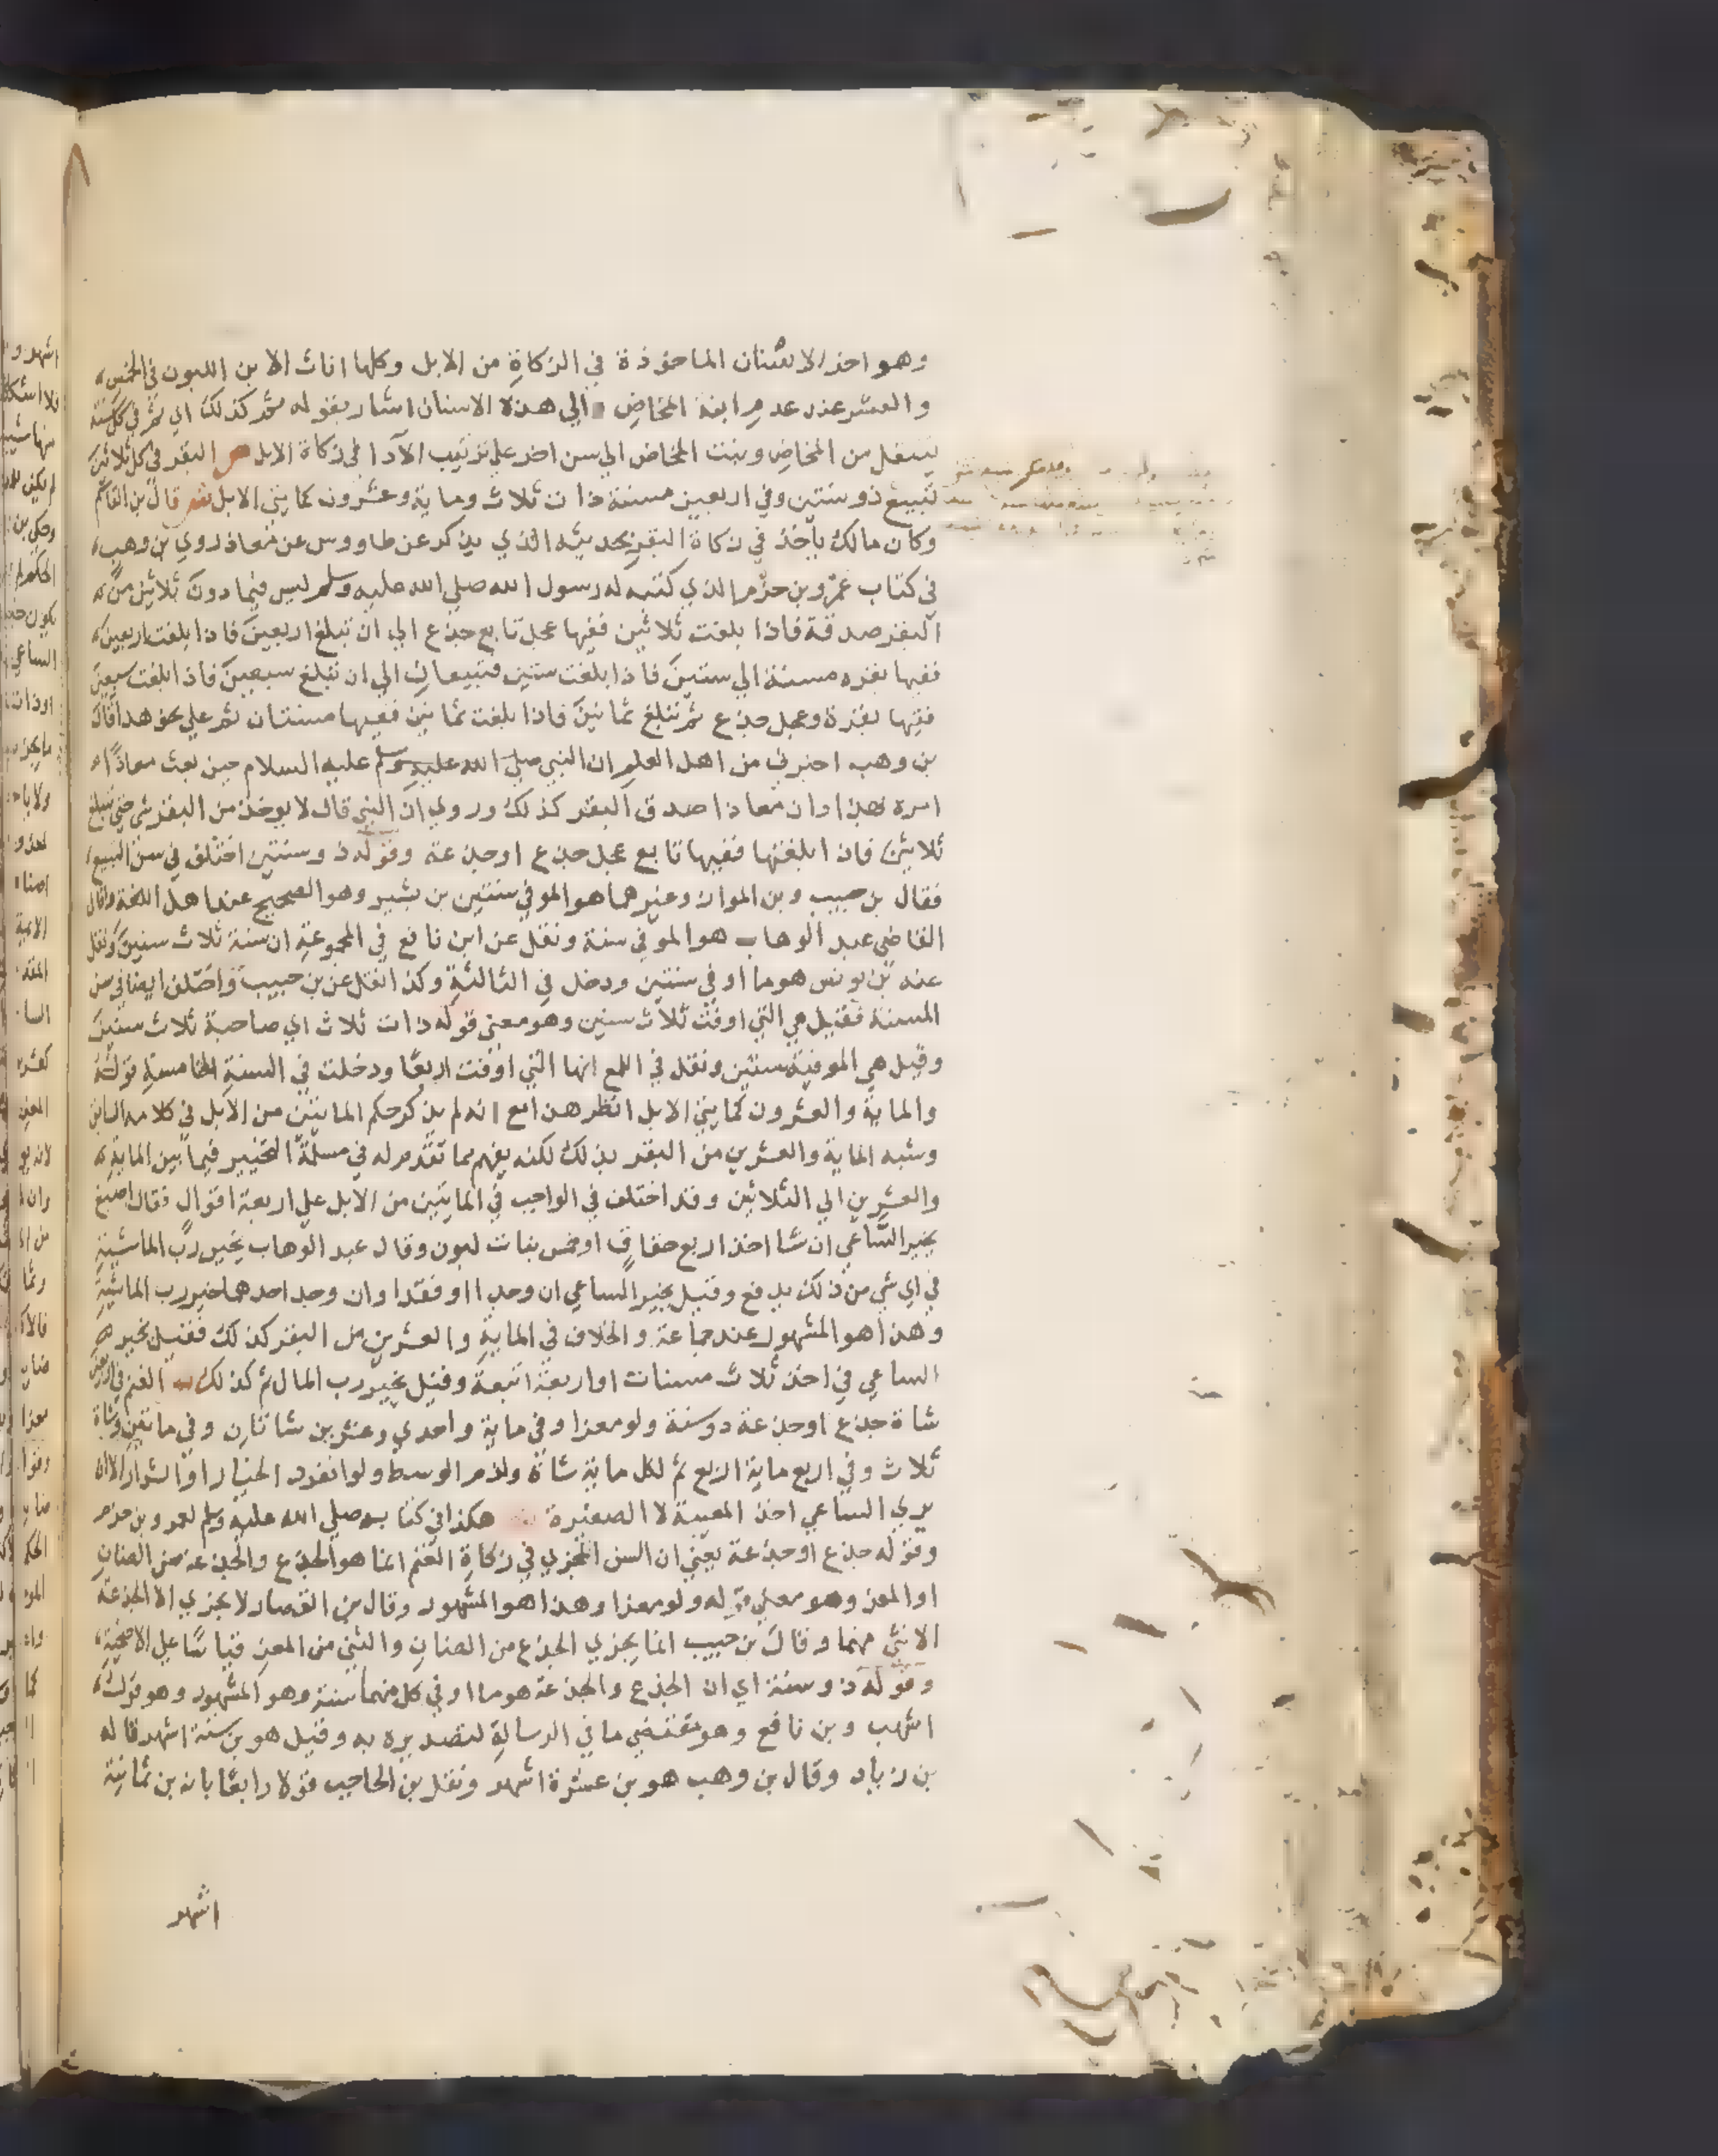 وهو احذ الاسنان الماخوذة في الزكاة من الابل وكلها اناث الا بن اللبون في الخمس
والعشر عند عدم ابنة المخاض الي هذه الاسنان اشار بقوله ثم كذلك اي ثم في كل سنة
ينتقل من المخاض وبنت المخاض الي سن اخر علي ترتيب الآدا في زكاة الابل ص البقر في كل ثلاثين
تبيع ذو سنتين وفي اربعين مسنة ذات ثلاث وماية وعشرون كمايتي الابل ش قال بن القاسم
وكان مالك ياخذ في زكاة البقر بحديثه الذي يذكر عن طاووس عن معاذ روي بن وهب
في كتاب عمرو بن حزم الذي كتبه له رسول الله صلي الله عليه وسلم ليس فيما دون ثلاثين من
البقر صدقة فاذا بلغت ثلاثين ففيها عجل تابع جذع الي ان تبلغ اربعين فاذا بلغت اربعين
ففيها بقره مسنة الي ستين فاذا بلغت ستين فتبيعان الي ان تبلغ سبعين فاذا بلغت سبعين
ففيها بقرة وعجل جذع ثم تبلغ ثمانين فاذا بلغت ثمانين ففيها مسنتان ثم علي نحو هذا قال
بن وهب اخبرني من اهل العلم ان النبي صلي الله عليه وسلم عليه السلام حين بعث معاذا
امره بهذا وان معاذا صدق البقر كذلك وروي ان النبي قال لا يوخذ من البقر شي حتي تبلغ
ثلاثين فاذا بلغتها ففيها تابع عجل جذع او جذعة وقوله ذو سنتين اختلف في سن التبيع
فقال بن حبيب وبن المواز وغيرهما هو الموفي سنتين بن بشير وهو الصحيح عند اهل اللغة وقال
القاضي عبد الوهاب هو الموفي سنة ونقل عن ابن نافع في المجموعة ان سنة ثلاث سنين ونقل
عنه بن يونس هو ما اوفي سنتين ودخل في الثالثة وكذا نقل عن بن حبيب واختلف ايضا في سن
المسنة فقيل هي التي اوفت ثلاث سنين وهو معني قوله ذات ثلاث اي صاحبة ثلاث سنين
وقيل هي الموفية سنتين ونقل في اللمع انها التي اوفت اربعا ودخلت في السنة الخامسة قوله
والماية والعشرون كمايتي الابل انظر هذا مع انه لم يذكر حكم المايتين من الابل في كلامه السابق
وشبه الماية والعشرين من البقر بذلك لكنه يفهم مما تقدم له في مسلة التخيير فيما بين الماية
والعشرين الي الثلاثين وقد اختلف في الواجب في المايتين من الابل علي اربعة اقوال فقال اصبغ
يخير الساعي ان شا اخذ اربع حقاق او خمس بنات لبون وقال عبد الوهاب يخير رب الماشية
في اي شي من ذلك يدفع وقيل يخير الساعي ان وجدا او فقدا وان وجد احدهما خير رب الماشية
وهذا هو المشهور عند جماعة والخلاف في الماية والعشرين من البقر كذلك فقيل يخير
الساعي في اخذ ثلاث مسنات او اربعة اتبعة وقيل يخير رب المال ثم كذلك ص الغنم في اربعين
شاة جذع او جذعة ذو سنة ولو معزا وفي ماية واحدي وعشرين شاتان وفي ماتين وشاة
ثلاث وفي اربع ماية اربع ثم لكل ماية شاة ولزم الوسط ولو انفرد الخيار او الشرار الا ان
يري الساعي اخذ المعيبة لا الصغيرة هكذا في كتابه صلي الله عليه وسلم لعمرو بن حزم
وقوله جذع او جذعة يعني ان السن المجزي في زكاة الغنم انما هو الجذع والجذعة من الضان
او المعز وهو معني قوله ولو معزا وهذا هو المشهور وقال بن القصار لا يجزي الا الجذعة
الانثي منهما وقال بن حبيب انما يجزي الجذع من الضان والثني من المعز قياسا علي الاضحية
وقوله ذو سنة اي ان الجذع والجذعة هو ما اوفي كل منهما سنة وهو المشهور وهو قول
اشهب وبن نافع وهو مقتضي ما في الرسالة لتصديره به وقيل هو بن ستة اشهر قاله
بن زياد وقال بن وهب هو بن عشرة اشهر ونقل بن الحاجب قولا رابعا بانه بن ثمانية
اشهر